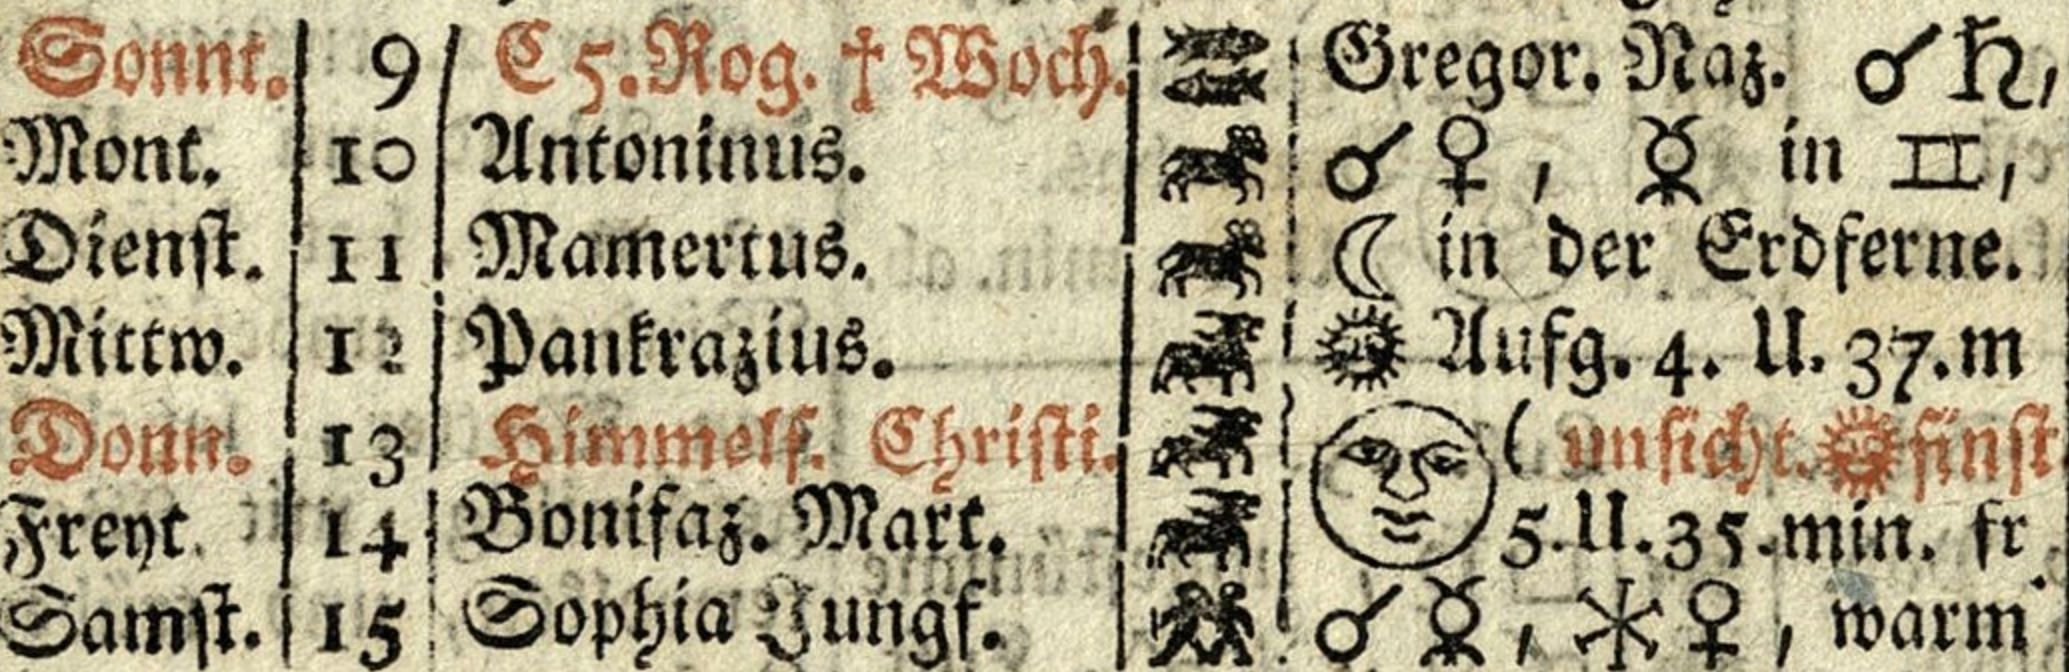 Sonnt. 9 C 5. Rog. † Woch. Gregor. Naz. ☌ ♄,
Mont. 10 Antoninus. ☌ ♀, ☿ in ♊,
Dienst. 11 Mamertus. ☾ in der Erdferne.
Mittw. 12 Pankrazius. Aufg. 4. U. 37. m
Donn. 13 Himmelf. Christi. ( unsicht. finst
Freyt. 14 Bonifaz. Mart. 5. U. 35. min. fr
Samst. 15 Sophia Jungf. ☌ ☿, ⚹ ♀, warm